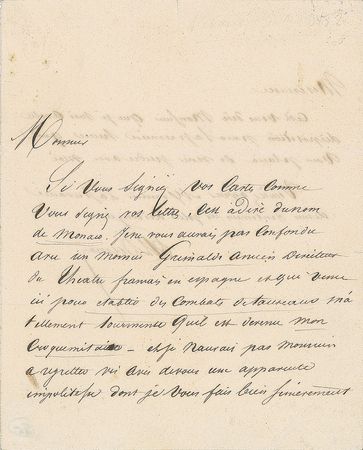 Monsieur
Si vous Signiez vos Cartes Comme
vous Signez vos lettres, C'est à dire du nom
de Monaco. Je ne vous aurais pas Confondu
avec un Monsieur Grimaldi ancien Directeur
du Theatre francais en espagne et qui venu
ici pour établir des Combats de taureaux m'a
tellement tourmenté qu'il est devenu mon
Croquemitaine — et je n'aurais pas Monsieur
a regretter vis avis de vous une apparente
impolitesse dont je vous fais bien Sincerement